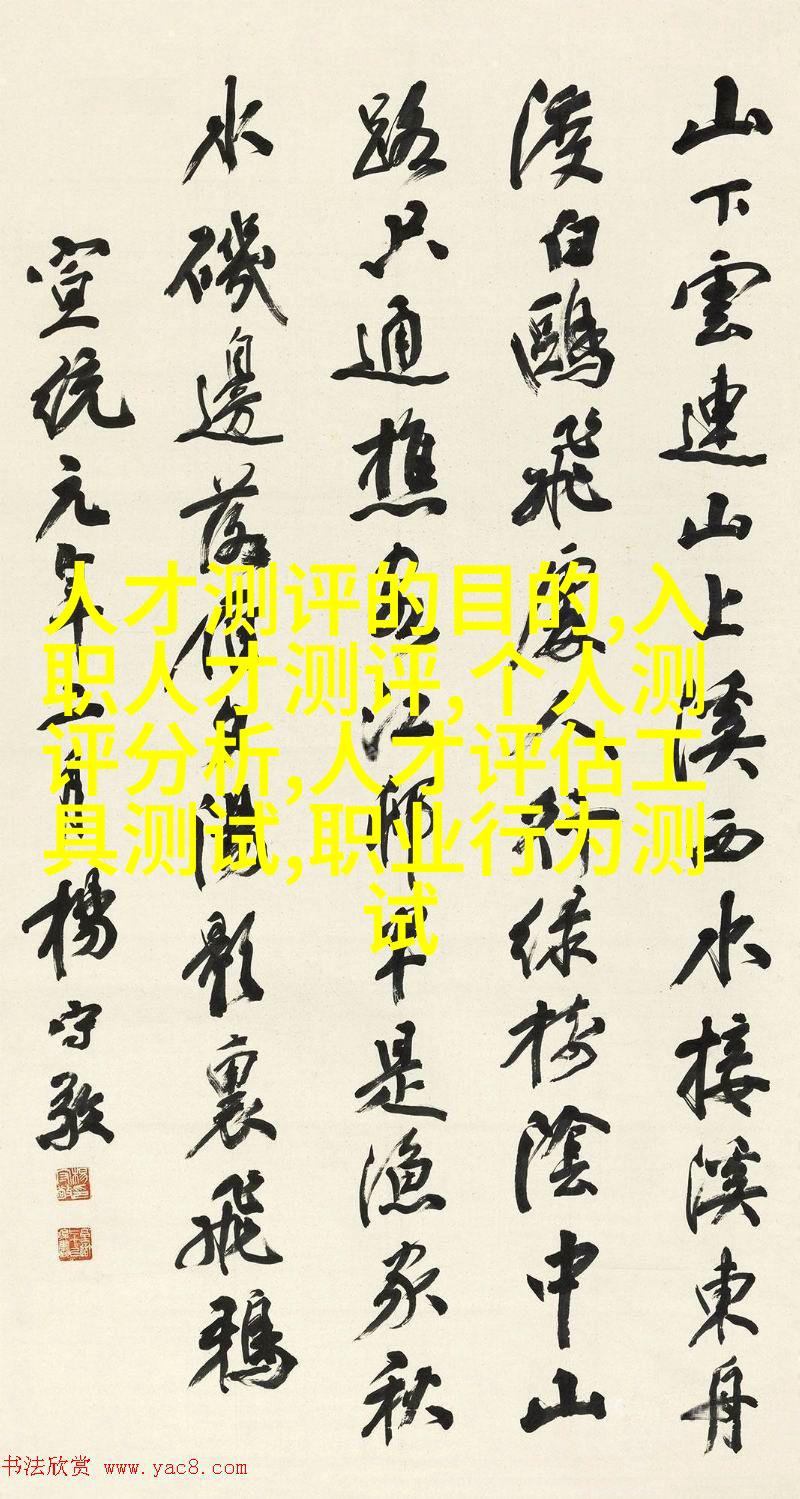 山下雲連山上溪西水接溪東舟
渡白鷗飛處人行綠樹陰中山
路只通樵江邨半是漁家秋
水磯邊落雁夕陽影裏飛鴉
宣統元年月楊守敬
人才测评的目的,入
职人才测评,个人测
评分析,人才评估工
具测试,职业行为测
试
书法欣赏 www.yac8.com